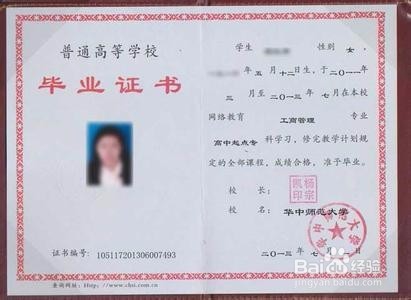 普通高等学校
毕业证书
证书编号: 105117201306007493
查询网址: Http://www.chsi.com.cn
学生 性别 女,
年 五 月十二日生,于二〇一一年
三 月至二〇一三年 七 月在本校
网络教育 工商管理 专业
高中起点专 科学习,修完教学计划规
定的全部课程,成绩合格,准予毕业。
校 长:
杨宗凯印
校 名: 华中师范大学
华中师范大学
二〇一三年 七月
Baidu 经验